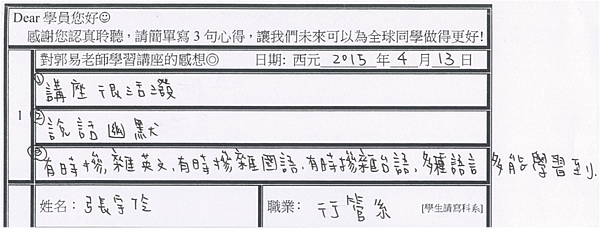 Dear 學員您好☺
感謝您認真聆聽，請簡單寫 3 句心得，讓我們未來可以為全球同學做得更好!
對郭易老師學習講座的感想◎ 日期: 西元 2015 年 4 月 13 日
1
① 講座很活潑
② 說話幽默
③ 有時摻雜英文,有時摻雜國語,有時摻雜台語,多種語言多能學習到.
姓名: 張宇伶 職業: 行管系 [學生請寫科系]